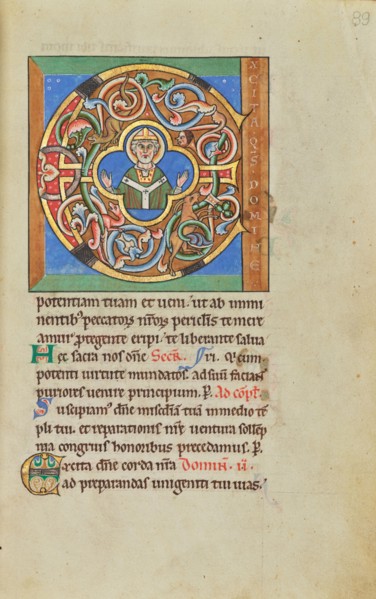 89
EXCITA QS DOMINE
potentiam tuam et veni. ut ab immi
nentib; peccatoꝝ nr̄oꝝ periclis te mere
amur ꝓtegente eripi. te liberante salua
Hęc sacra nos dn̄e Secr̄. ri.
potenti uirtute mundatos. ad suū faciant
puriores uenire principium. P. Ad cōpl̄.
Suscipiam᷒ dn̄e mīsc̄diā tuā in medio tē
pli tui. et reparationis nr̄ę uentura sollēp
nia congruis honoribus precedamus. P.
Excita dn̄e corda nr̄a Domin̄. ii.
ad preparandas unigeniti tui uias.